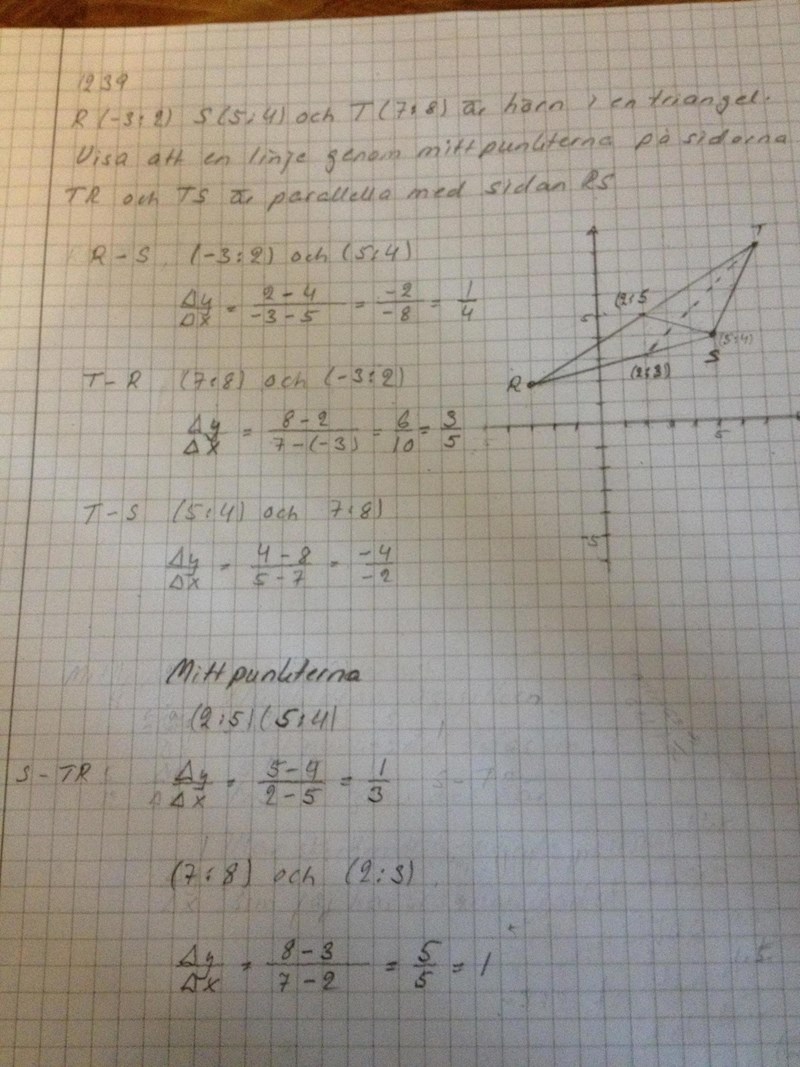 1239
R (-3:2) S(5:4) och T(7:8) är hörn i en triangel.
Visa att en linje genom mittpunkterna på sidorna
TR och TS är parallella med sidan RS
R-S (-3:2) och (5:4)
Δy/Δx = 2-4/-3-5 = -2/-8 = 1/4
T-R (7:8) och (-3:2)
Δy/Δx = 8-2/7-(-3) = 6/10 = 3/5
T-S (5:4) och 7:8)
Δy/Δx = 4-8/5-7 = -4/-2
T
(2:5
5
(5:4)
S
R
(2:3)
5
-5
Mittpunkterna
(2:5) (5:4)
S-TR: Δy/Δx = 5-4/2-5 = 1/3
(7:8) och (2:3)
Δy/Δx = 8-3/7-2 = 5/5 = 1